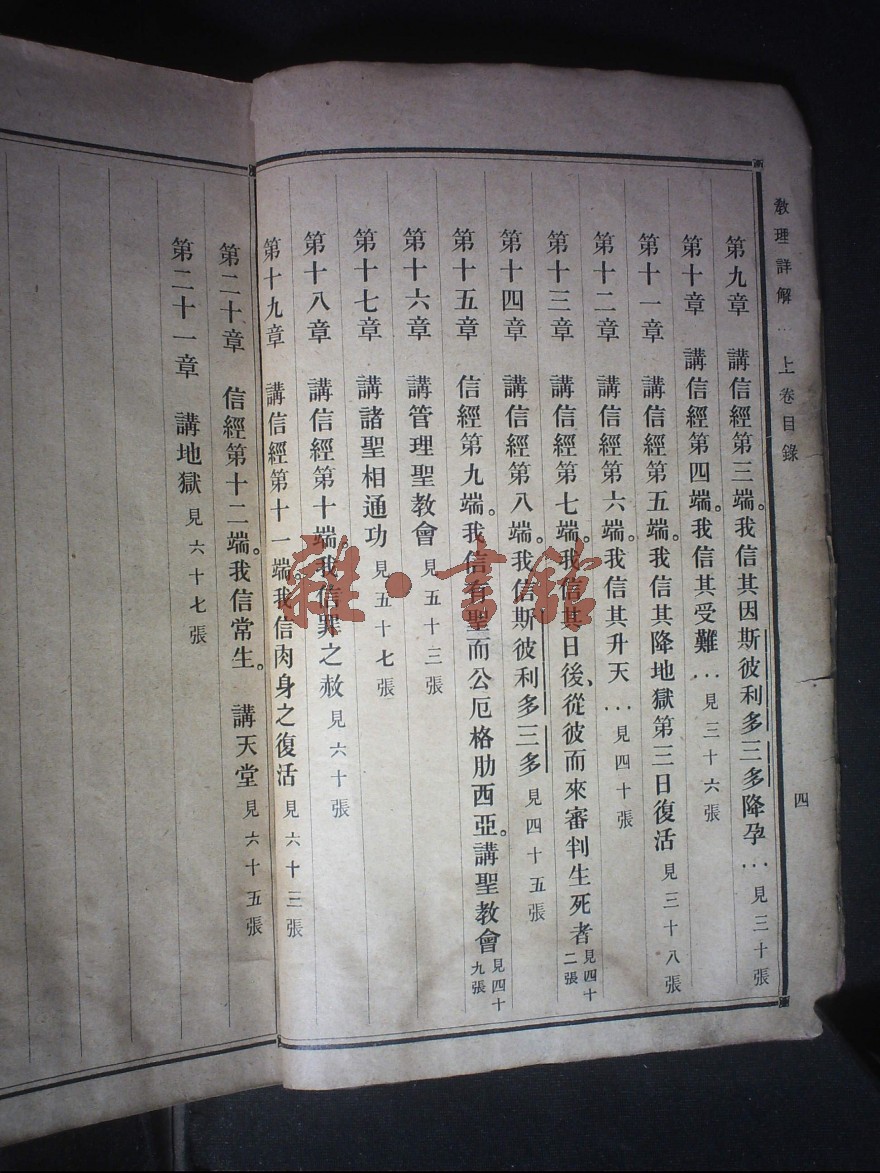 教理詳解 … 上卷目錄
四
第九章 講信經第三端。我信其因斯彼利多三多降孕…見三十張
第十章 講信經第四端。我信其受難…見三十六張
第十一章 講信經第五端。我信其降地獄第三日復活 見三十八張
第十二章 講信經第六端。我信其升天…見四十張
第十三章 講信經第七端。我信其日後、從彼而來審判生死者 見四十二張
第十四章 講信經第八端。我信斯彼利多三多 見四十五張
第十五章 信經第九端。我信有聖而公厄格肋西亞。講聖教會 見四十九張
第十六章 講管理聖教會 見五十三張
第十七章 講諸聖相通功 見五十七張
第十八章 講信經第十端我信罪之赦 見六十張
第十九章 講信經第十一端。我信肉身之復活 見六十三張
第二十章 信經第十二端。我信常生。 講天堂 見六十五張
第二十一章 講地獄 見六十七張
雜·書館